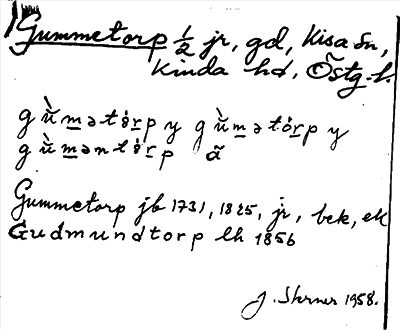 Gummetorp ½ jr, gd, Kisa sn,
Kinda hd, Östg. l.
gùmətórp y gùmətórp y
gùməntórp ã
Gummetorp jb 1731, 1825, jr, bek, ek
Gudmundtorp lh 1856
J. Sterner 1958.